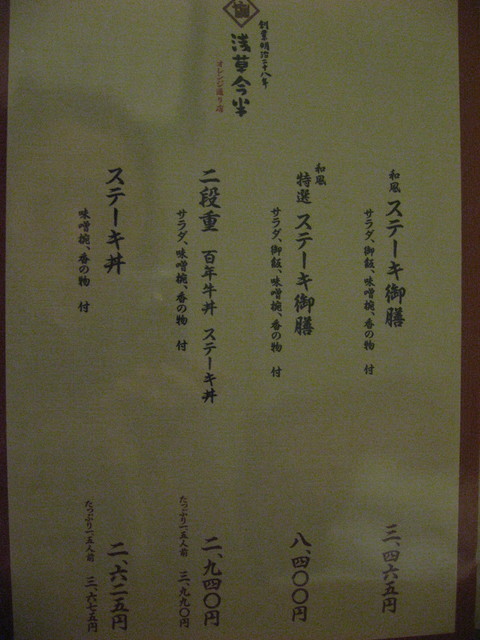 創業明治二十八年
浅草今半
オレンジ通り店
和風 ステーキ御膳
サラダ、御飯、味噌椀、香の物 付
三、四六五円
和風
特選 ステーキ御膳
サラダ、御飯、味噌椀、香の物 付
八、四〇〇円
二段重 百年牛丼 ステーキ丼
サラダ、味噌椀、香の物 付
二、九四〇円
たっぷり一・五人前 三、九九〇円
ステーキ丼
味噌椀、香の物 付
二、六二五円
たっぷり一・五人前 三、六七五円